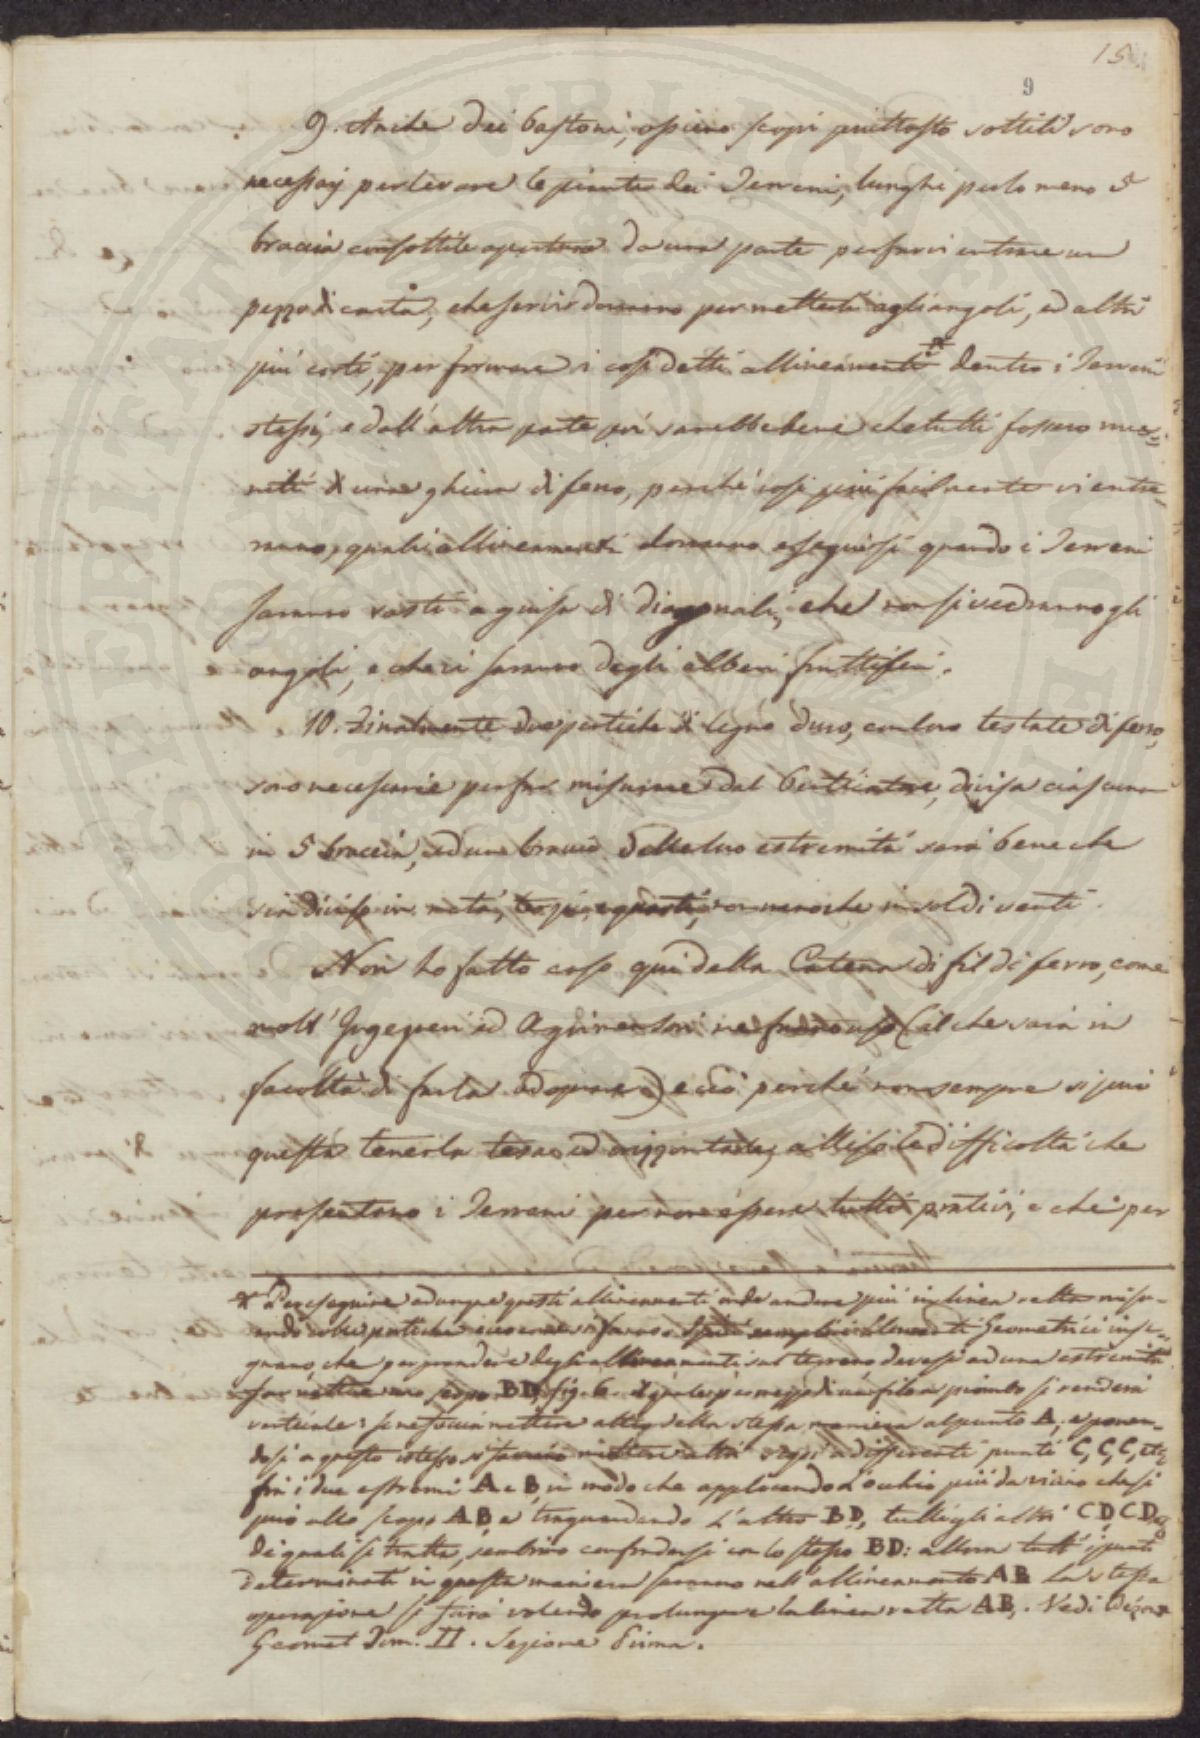 15
9
9. Anche dei bastoni, ossieno scopi piuttosto sottili sono
necessarj per levare le piante dei Terreni, lunghi per lo meno 5
braccia con sottile apertura da una parte per farvi entrare un
pezzo di carta, che servir dovranno per metterli agli angoli, ed altri
più corti, per formare i così detti allineamenti * dentro i Terreni
stessi, e dall'altra parte poi sarebbe bene che tutti fossero mu=
niti di una ghiera di ferro, perché così più facilmente vi entre=
ranno, quali allineamenti dovranno eseguirsi quando i Terreni
saranno vasti a guisa di diagonali, che non si vedranno gli
angoli, e che ci saranno degli alberi fruttiferi.
10. Finalmente due pertiche di legno duro, con loro testate di ferro,
sono necessarie per far misurare dal , divisa ciascuna
in 5 braccia, ed un braccio delle loro estremità sarà bene che
sia diviso in metà, terzi, e quarti, non meno che in soldi venti.
Non ho fatto caso quì della Catena di fil di ferro, come
molt' Ingegneri ed Agrimensori ne fanno uso (il che sarà in
facoltà di farla adoprare) e ciò perché non sempre si può
questa tenerla tesa, ed orizzontale, attese le difficoltà che
presentano i Terreni per non essere tutti prativi, e che per
* Per eseguire adunque questi allineamenti onde andare più in linea retta misu-
rando colle pertiche Elementi Geometrici inse=
gnano, che per prendere degli allineamenti sul terreno devesi ad una estremità
far mettere uno scopo BD, fig. 6. il quale per mezzo di un filo a piombo si renderà
verticale: se ne faccia mettere altro della stessa maniera al punto A, e ponen-
dosi a questo istesso, si faccino mettere altri scopi a differenti punti C, C, C, etc;
fra i due estremi A e B, in modo che applicando l'occhio più da vicino che si
può allo scopo AB, e traguardando l'altro BD, tutti gli altri CD, CD,
de quali si tratta, sembrino confondersi con lo stesso BD: allora tutti i punti
determinati in questa maniera saranno nell'allineamento AB. La stessa
operazione si farà volendo prolungare la linea retta AB. Vedi
Geomet Tom. II. Sezione Prima.